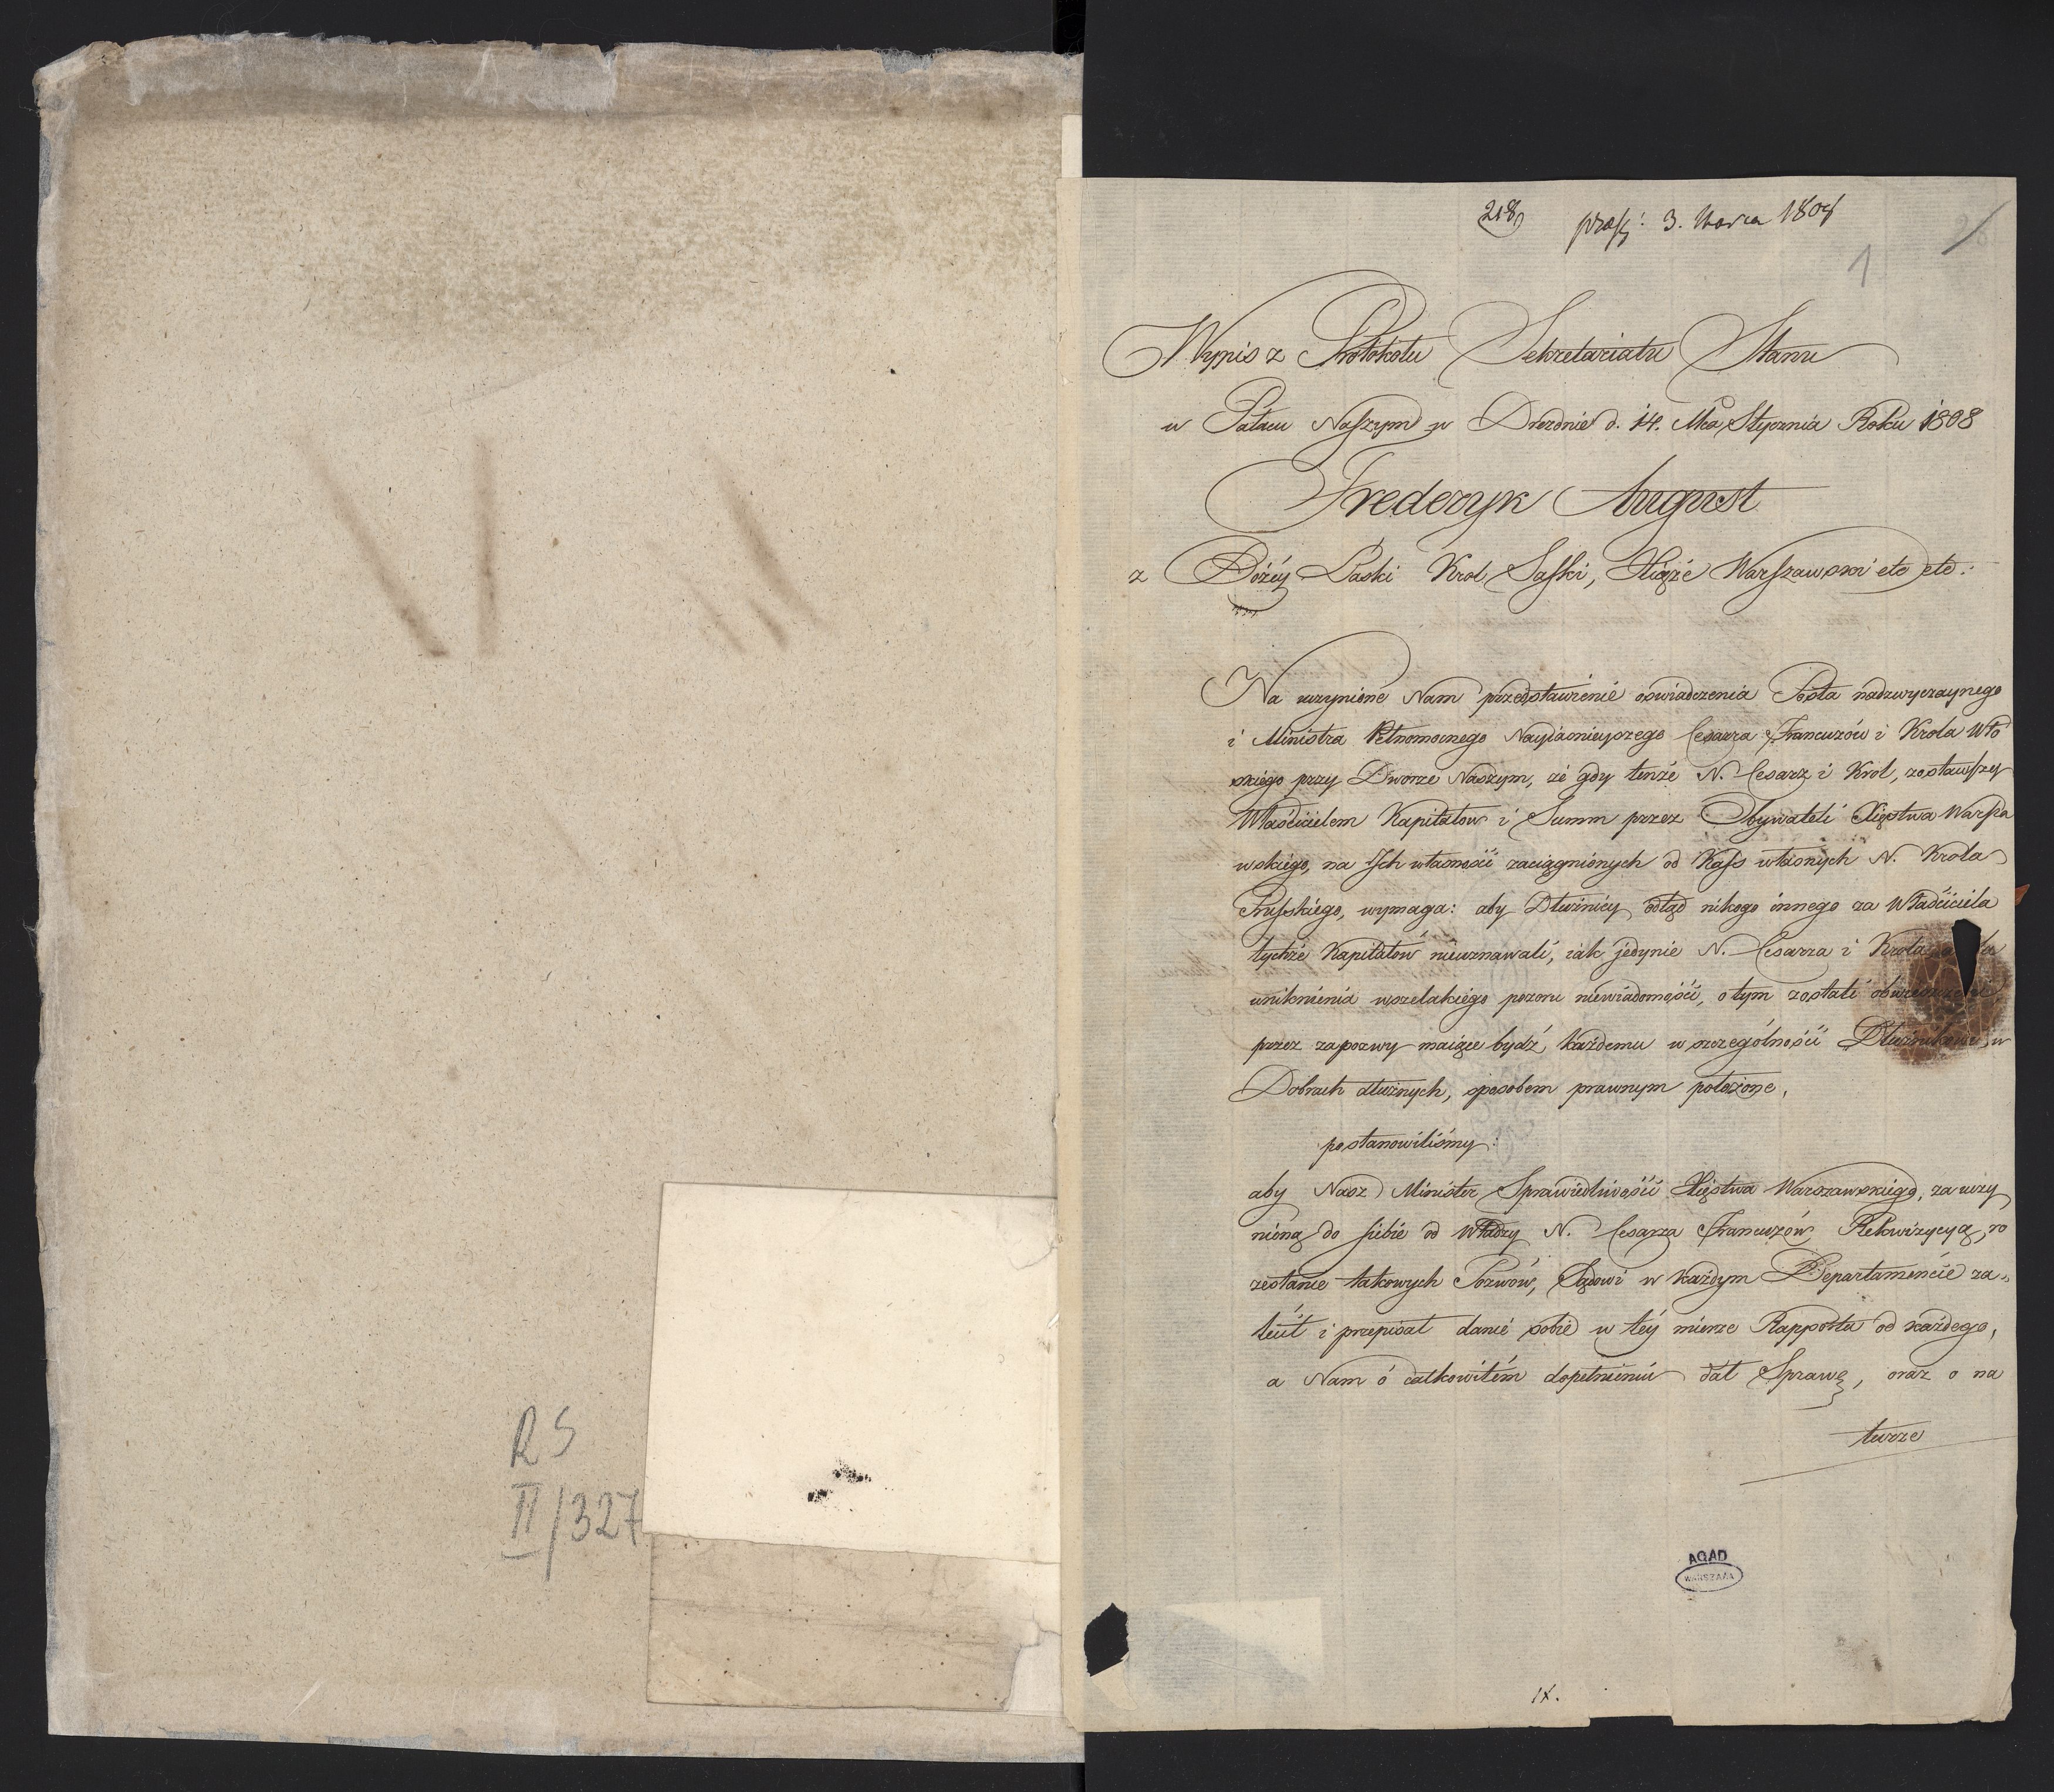 RS
II/327
218) præs: 3. Marca 1808
1
Wypis z Protokołu Sekretariatu Stanu
w Pałacu Naszym w Dreznie d. 14. Mca Stycznia Roku 1808
Frederyk August
z Bożey Łaski Krol Saski, Xiąże Warszawski etc etc:
Na uczynione Nam przedstawienie oswiadczenia Posła nadzwyczaynego
i Ministra Pełnomocnego Nayiaśnieyszego Cesarza Francuzów i Krola Wło
skiego przy Dworze Naszym, że gdy tenże N. Cesarz i Krol, zostawszy
Właścicielem Kapitałow i Summ przez Obywateli Xięstwa Warsza
wskiego, na Ich własności zaciągnionych od Kass własnych N. Krola
Pruskiego, wymaga: aby Dłużnicy odtąd nikogo innego za Właściciela
tychże Kapitałow nieuznawali, iak jedynie N. Cesarza i Krola
uniknienia wszelakiego pozoru niewiadomości, o tym zostali obwieszczeni
przez zapozwy maiące bydź każdemu w szczególności Dłużnikowi, w
Dobrach dłużnych, sposobem prawnym położone,
postanowiliśmy:
aby Nasz Minister Sprawiedliwości Xięstwa Warszawskiego, za uczy
nioną do siebie od Władzy N. Cesarza Francuzów Rekwizycyą, ro
zesłanie takowych Pozwów, Sądowi w każdym Departamencie za-
lecił i przepisał danie sobie w tey mierze Rapportu od każdego,
a Nam ó całkowitém dopełnieniu dał Sprawę, oraz o na
turze
AGAD
WARSZAWA
IX.